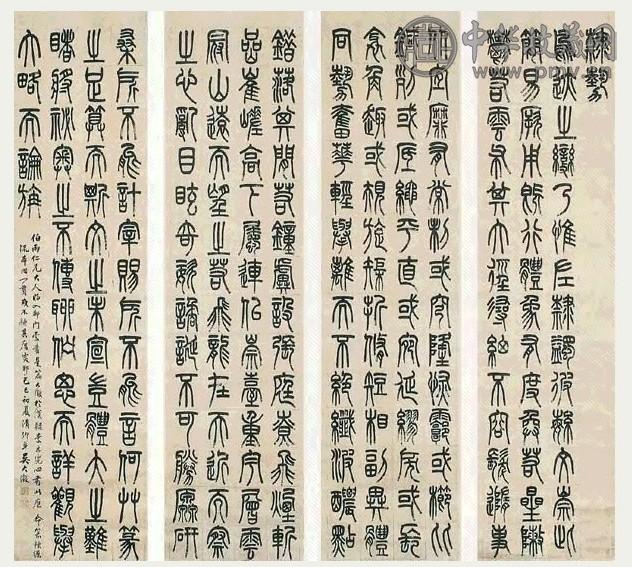 中华收藏网
www.pmv.cn
隸勢
鳥跡之變乃惟佐隸蠲彼繁文崇此
簡易厥用既弘體象有度奐若星陳
鬱若雲布其大徑尋細不容髮隨事
從宜靡有常制或穹隆恢廓或櫛比
鍼列或砥繩平直或蜿蜒繆戾或長
邪角趣或規旋矩折修短相副異體
同勢奮華輕舉離而不絕纖波濃點
錯落其間若鐘虡設張庭燎飛煙嶄
嵒嵯峨高下屬連似崇臺重宇層雲
冠山遠而望之若飛龍在天近而察
之心亂目眩奇姿譎誕不可勝原研
桑所不能計宰賜所不能言何草篆
之足算而斯文之未宣豈體大之難
睹將秘奧之不傳聊佇思而詳觀舉
大略而論旃
伯雨仁兄大人
己巳初夏 吳大澂